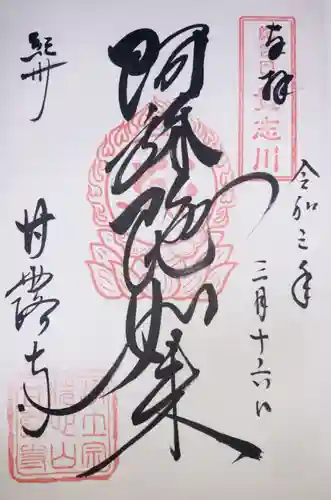 奉拝
令和三年
三月十六日
阿弥陀如来
紀州
甘露寺